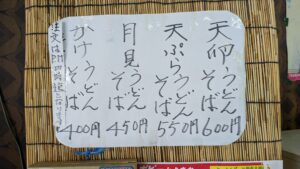 天卵うどん
そば
600円
天ぷらうどん
そば
550円
月見うどん
そば
450円
かけうどん
そば
400円
注文はPM